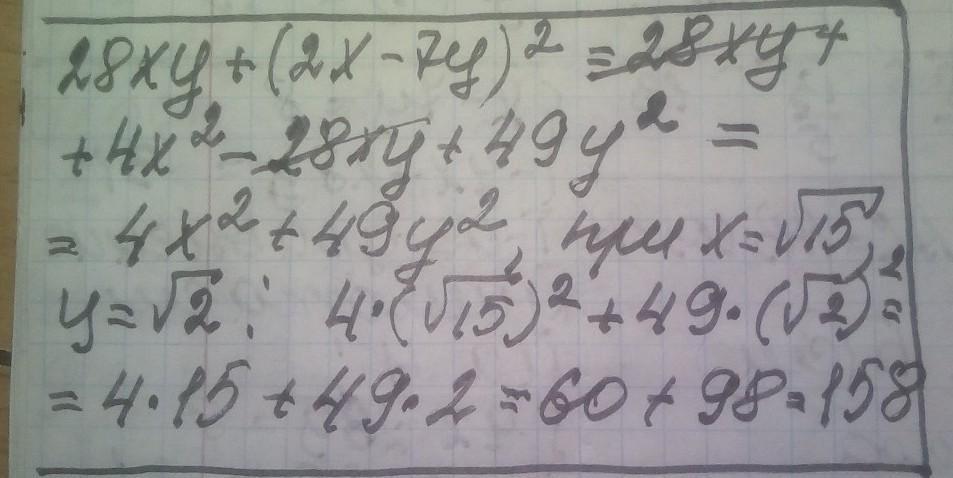 28xy + (2x - 7y)² = 28xy +
+ 4x² - 28xy + 49y² =
= 4x² + 49y², при x = √15,
y = √2 : 4·(√15)² + 49·(√2)² =
= 4·15 + 49·2 = 60 + 98 = 158